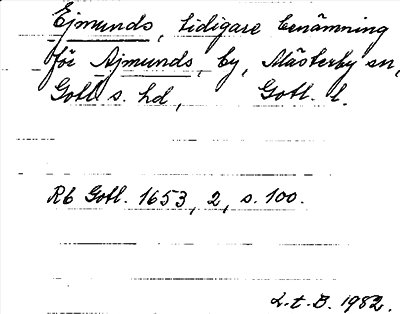 Ejmunds, tidigare benämning
för Ajmunds, by, Mästerby sn,
Gotl. s. hd, Gotl. l.
Rb Gotl. 1653, 2, s. 100.
L.t.B. 1982.